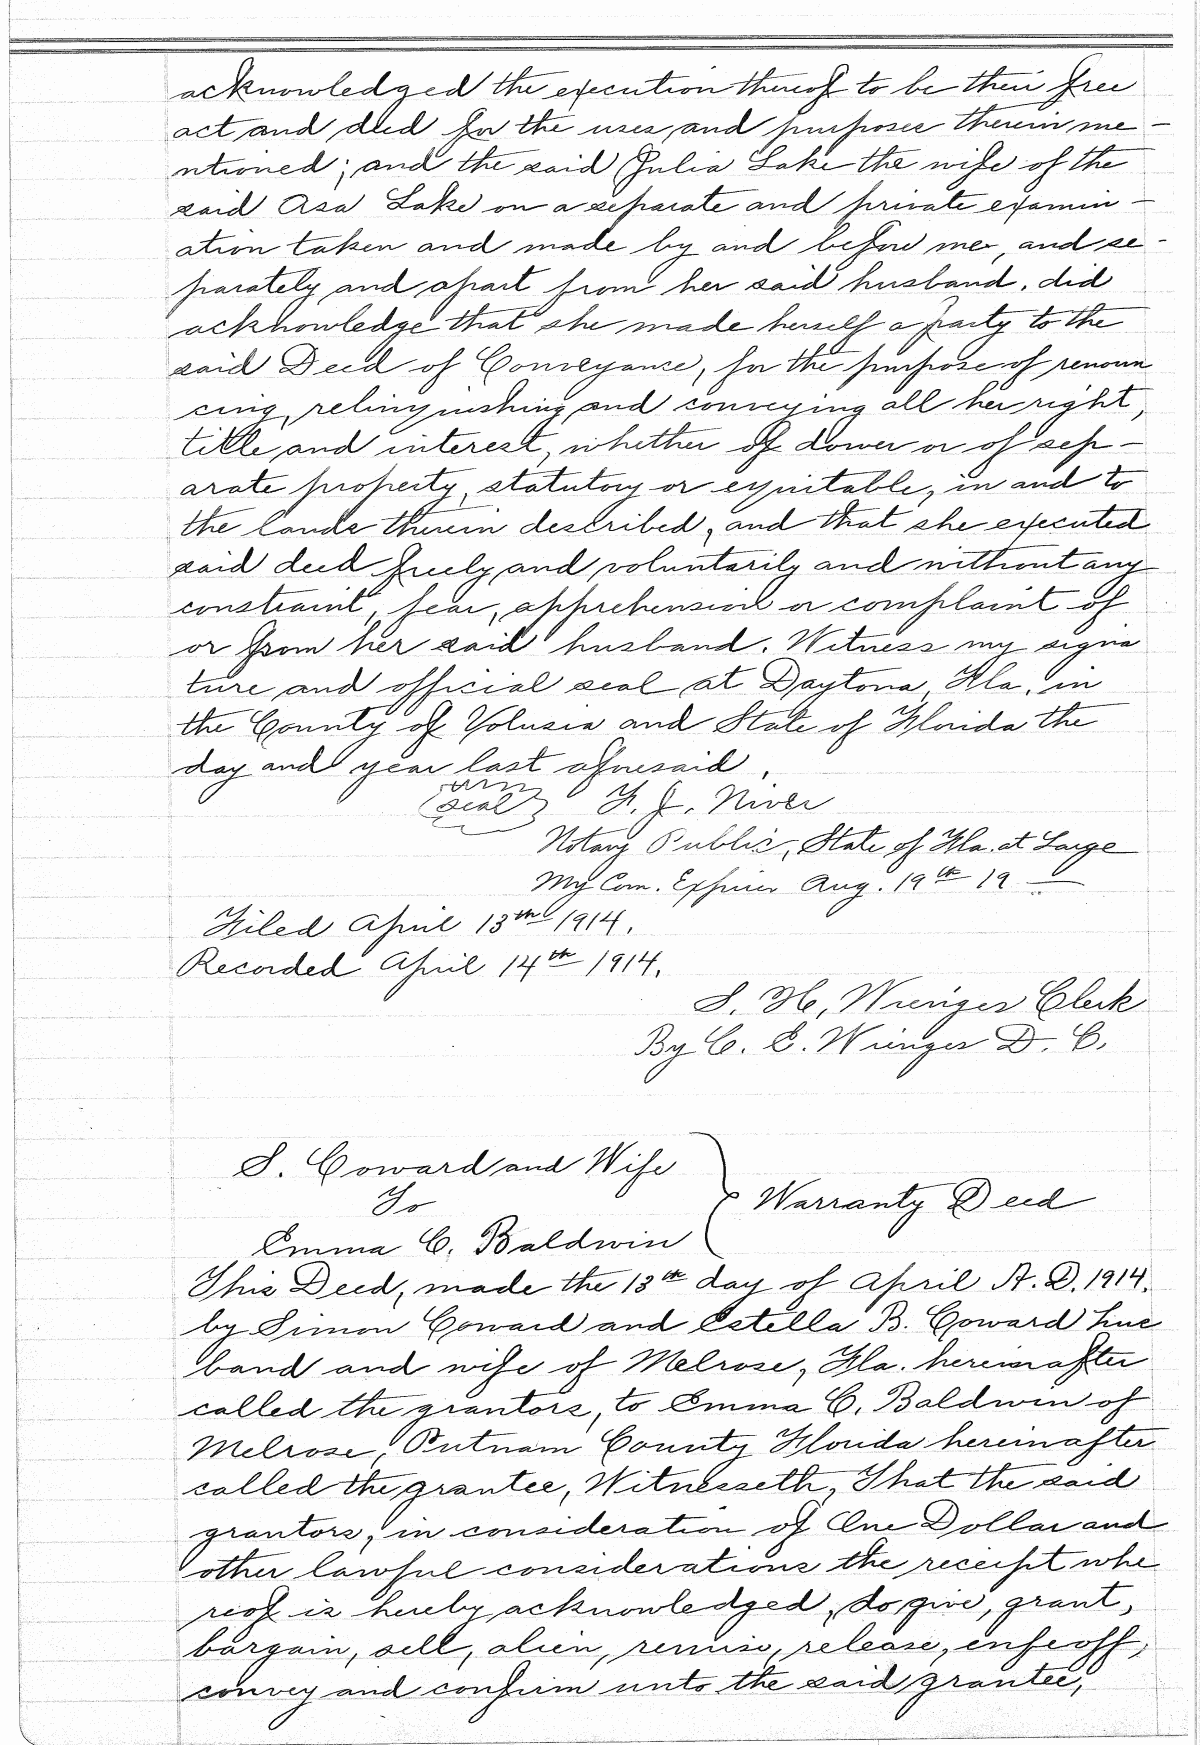 acknowledged the execution thereof to be their free
act and deed for the uses and purposes therein me-
ntioned; and the said Julia Lake the wife of the
said Asa Lake on a separate and private examin-
ation taken and made by and before me, and se-
parately and apart from her said husband, did
acknowledge that she made herself a party to the
said Deed of Conveyance, for the purpose of renoun
cing, relinquishing and conveying all her right,
title and interest, whether of dower or of sep-
arate property, statutory or equitable, in and to
the lands therein described, and that she executed
said deed freely and voluntarily and without any
constraint, fear, apprehension or complaint of
or from her said husband. Witness my signa
ture and official seal at Daytona, Fla. in
the County of Volusia and State of Florida the
day and year last aforesaid.
(seal) F. J. Niver
Notary Public, State of Fla. at Large
My Com. Expires Aug. 19th 19 —
Filed April 13th 1914.
Recorded April 14th 1914.
S. H. Wienges Clerk
By C. E. Wienges D. C.
S. Coward and Wife
To
Emma C. Baldwin
Warranty Deed
This Deed, made the 13th day of April A. D. 1914.
by Simon Coward and Estella B. Coward hus
band and wife of Melrose, Fla. hereinafter
called the grantors, to Emma C. Baldwin of
Melrose, Putnam County Florida hereinafter
called the grantee, Witnesseth, That the said
grantors, in consideration of One Dollar and
other lawful considerations the receipt whe
reof is hereby acknowledged, do give, grant,
bargain, sell, alien, remise, release, enfeoff,
convey and confirm unto the said grantee,